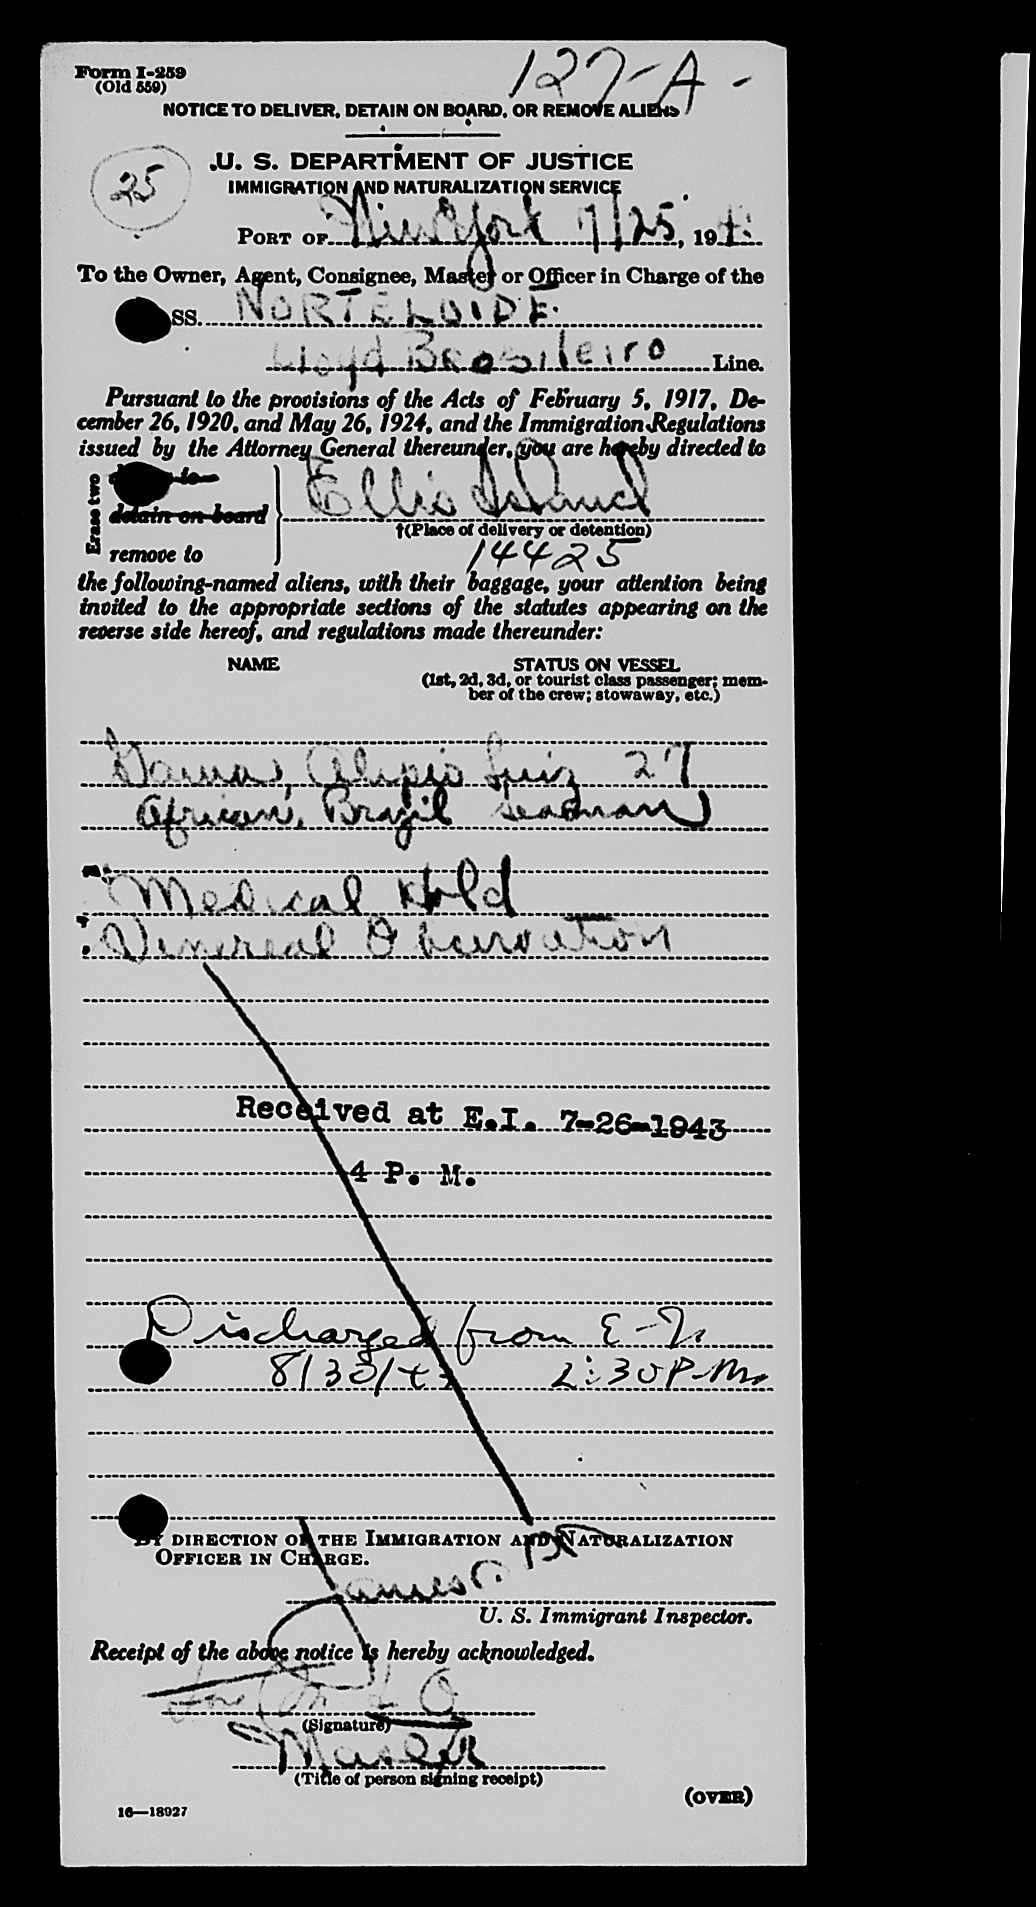 Form I-259
(Old 559)
127-A-
NOTICE TO DELIVER, DETAIN ON BOARD, OR REMOVE ALIENS
25
U. S. DEPARTMENT OF JUSTICE
IMMIGRATION AND NATURALIZATION SERVICE
PORT OF New York 7/25, 194
To the Owner, Agent, Consignee, Master or Officer in Charge of the
SS. NORTELOIDE
Lloyd Brasileiro Line.
Pursuant to the provisions of the Acts of February 5, 1917, De-
cember 26, 1920, and May 26, 1924, and the Immigration Regulations
issued by the Attorney General thereunder, you are hereby directed to
Erase two
to
detain on board
remove to
Ellis Island
†(Place of delivery or detention)
14425
the following-named aliens, with their baggage, your attention being
invited to the appropriate sections of the statutes appearing on the
reverse side hereof, and regulations made thereunder:
NAME STATUS ON VESSEL
(1st, 2d, 3d, or tourist class passenger; mem-
ber of the crew; stowaway, etc.)
Gama, Alipio Luiz 27
African, Brazil Seaman
Medical Hold
Venereal Observation
Received at E.I. 7-26-1943
4 P. M.
Discharged from E-I.
8/30/43 2:30 P.M.
BY DIRECTION OF THE IMMIGRATION AND NATURALIZATION
OFFICER IN CHARGE.
James
U. S. Immigrant Inspector.
Receipt of the above notice is hereby acknowledged.
(Signature)
Master
(Title of person signing receipt)
(OVER)
16—18927